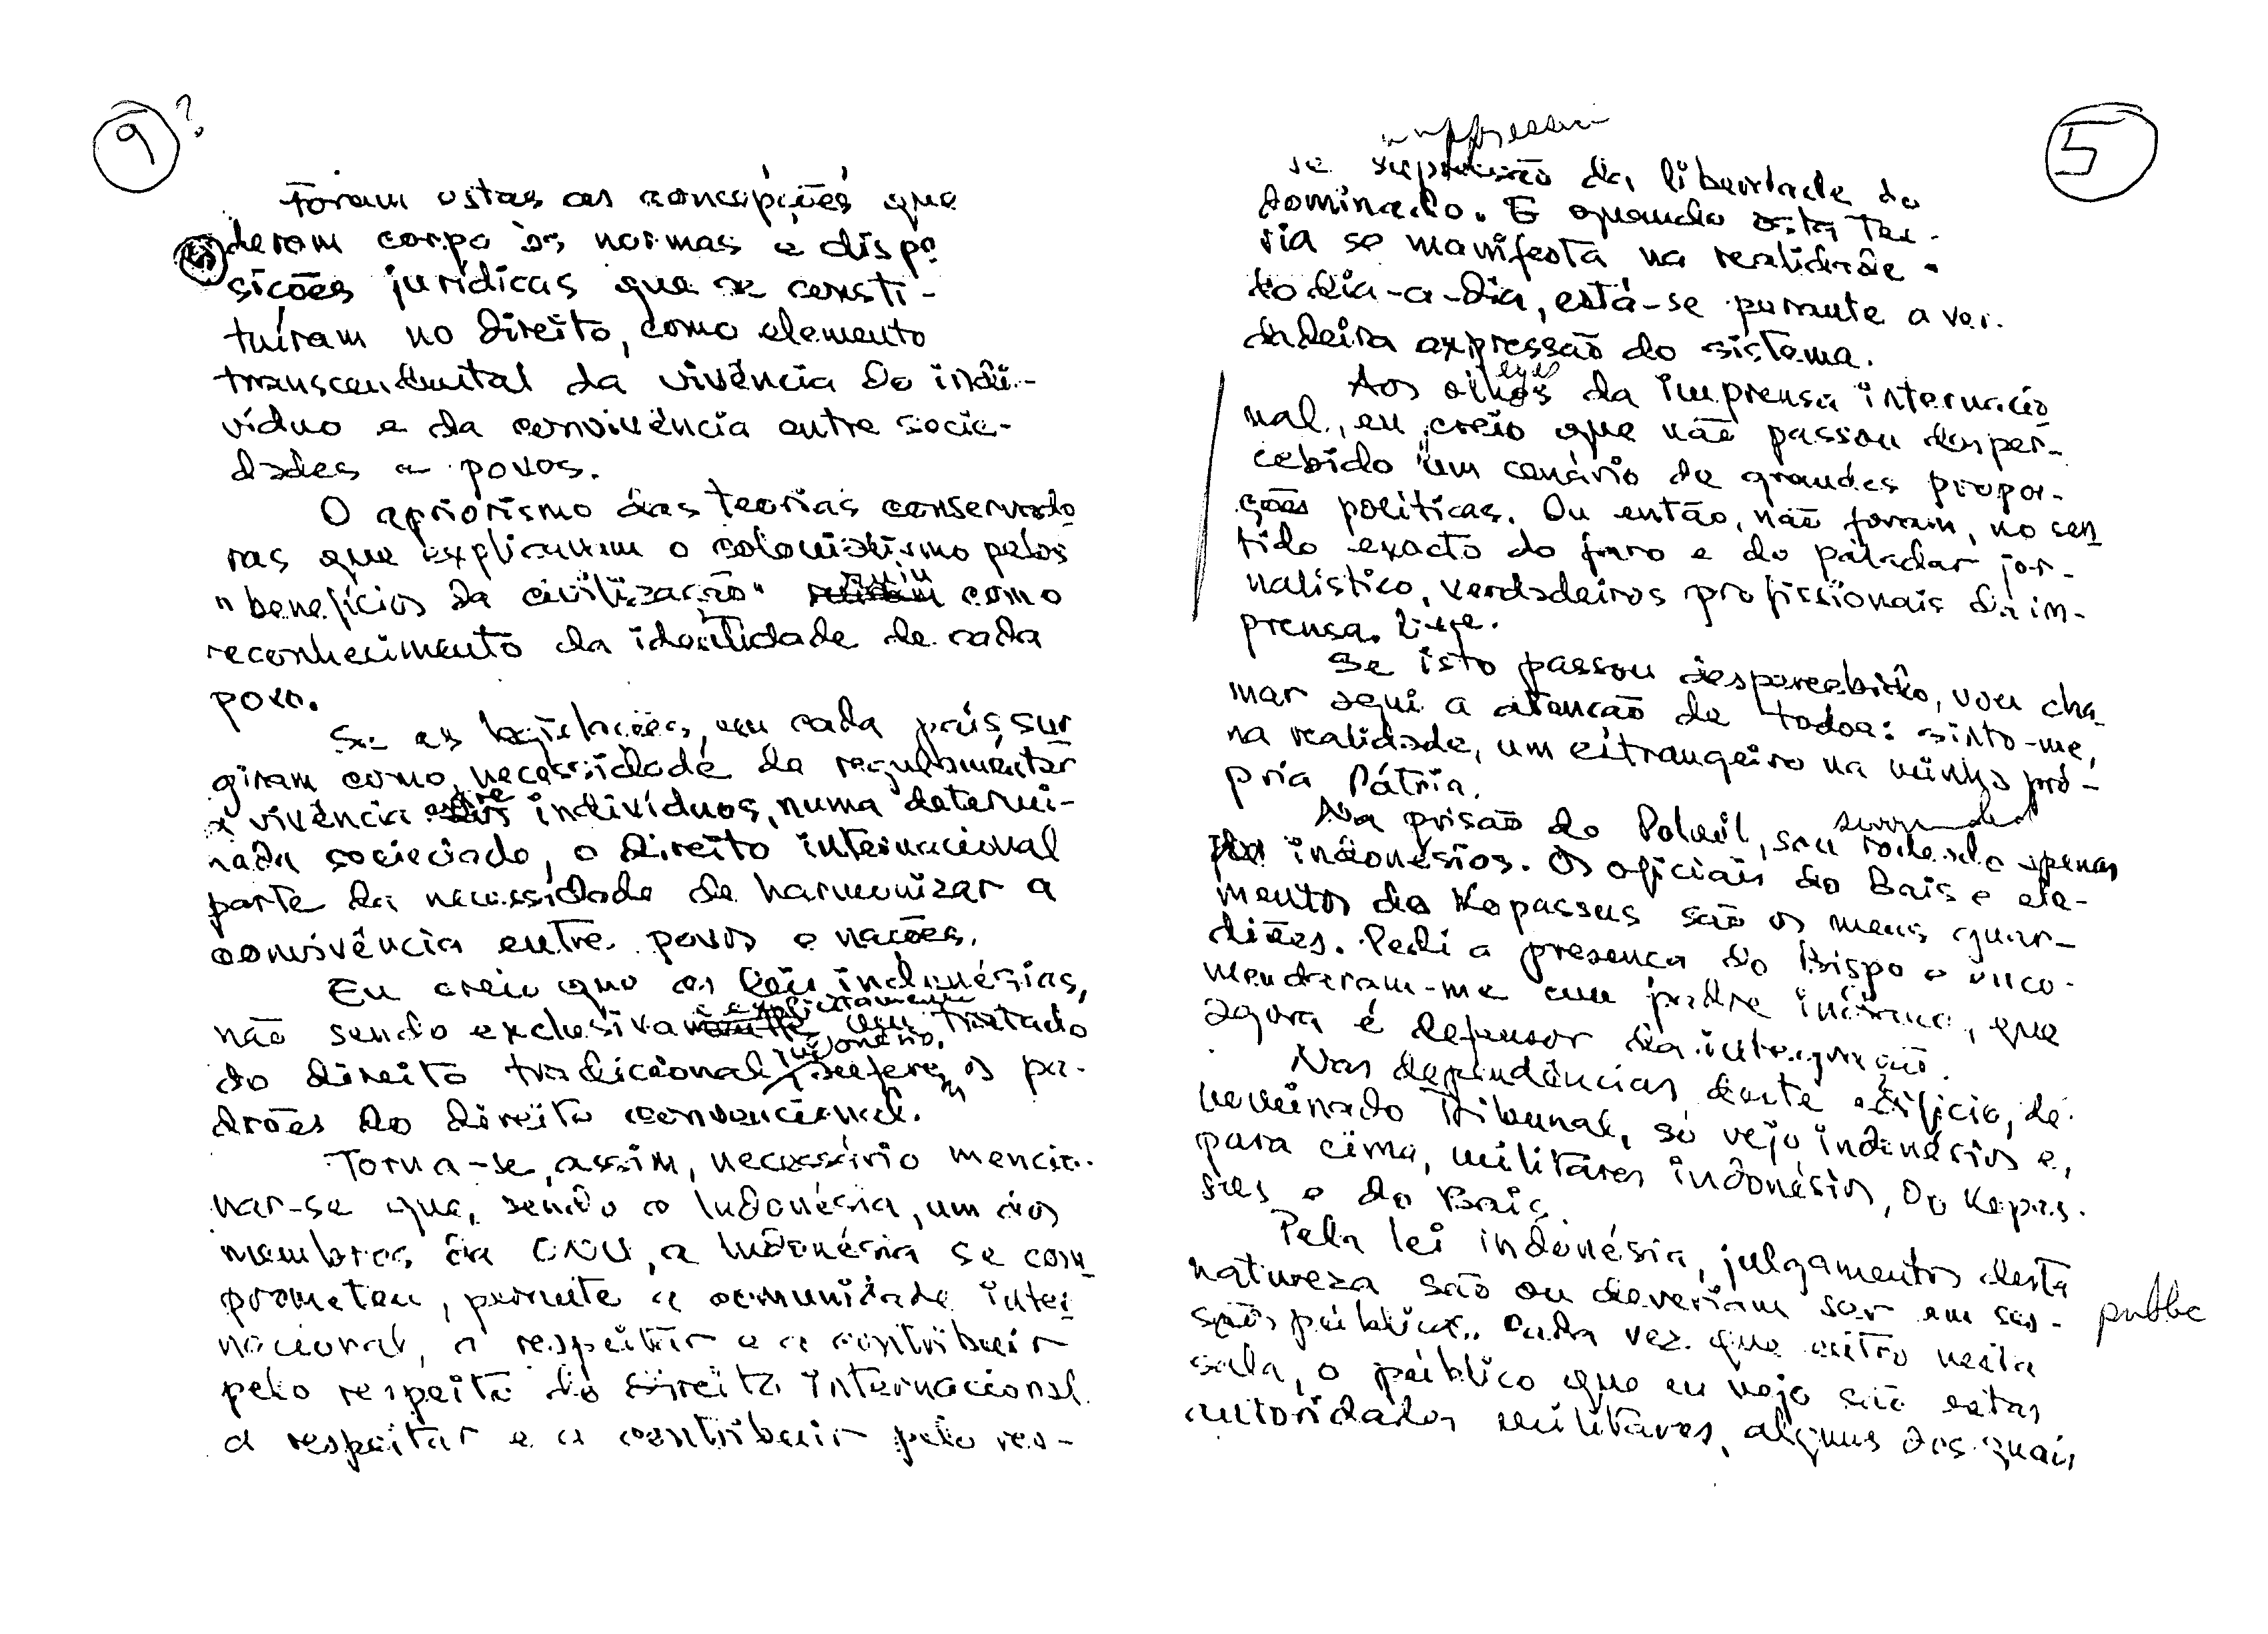 9 ?
Foram estas as concepções que
deram corpo às normas e dispo
sições jurídicas que se consti-
tuíram no direito, como elemento
transcendental da vivência do indi-
víduo e da convivência entre socie-
dades e povos.
O apriorismo das teorias conservado
ras que explicavam o colonialismo pelos
"benefícios da civilização" ruiu como
reconhecimento da identidade de cada
povo.
Se as legislações, em cada país, sur
giram como necessidade de regulamentar
a vivência entre indivíduos, numa determi-
nada sociedade, o direito internacional
parte da necessidade de harmonizar a
convivência entre povos e nações.
Eu creio que as leis indonésias,
não sendo exclusiva e explicitamente um tratado
do direito tradicional indonésio, sufere, os pa-
drões do direito convencional.
Torna-se, assim, necessário mencio-
nar-se que, sendo a Indonésia, um dos
membros da ONU, a Indonésia se com
prometeu, perante a comunidade inter
nacional, a respeitar e a contribuir
pelo respeito do direito internacional
a respeitar e a contribuir pelo res-
5
suppression
se supressão da liberdade do
dominado. E quando esta teo-
ria se manifesta na realidade
do dia-a-dia, está-se perante a ver-
dadeira expressão do sistema.
eyes
Aos olhos da imprensa internacio
nal, eu creio que não passou desper-
cebido um cenário de grandes propor-
ções políticas. Ou então, não foram, no sen
tido exacto do faro e do paladar jor-
nalístico, verdadeiros profissionais da im-
prensa livre.
Se isto passou despercebido, vou cha
mar aqui a atenção de todos: sinto-me,
na realidade, um estrangeiro na minha pró-
pria Pátria.
surrounded
Na prisão do Polwil, sou rodeado apenas
por indonésios. Os oficiais do Bais e ele-
mentos do Kopassus são os meus guar-
diães. Pedi a presença do Bispo e enco-
mendaram-me um padre indiano, que
agora é defensor da integração.
Nas dependências deste edifício, de
nominado Tribunal, só vejo indonésios e,
para cima, militares indonésios, do Kopas-
sus e do Bais.
Pela lei indonésia, julgamentos desta
natureza são ou deveriam ser em ses-
public
sões públicas. Cada vez que entro nesta
sala, o público que eu vejo são estas
autoridades militares, alguns dos quais